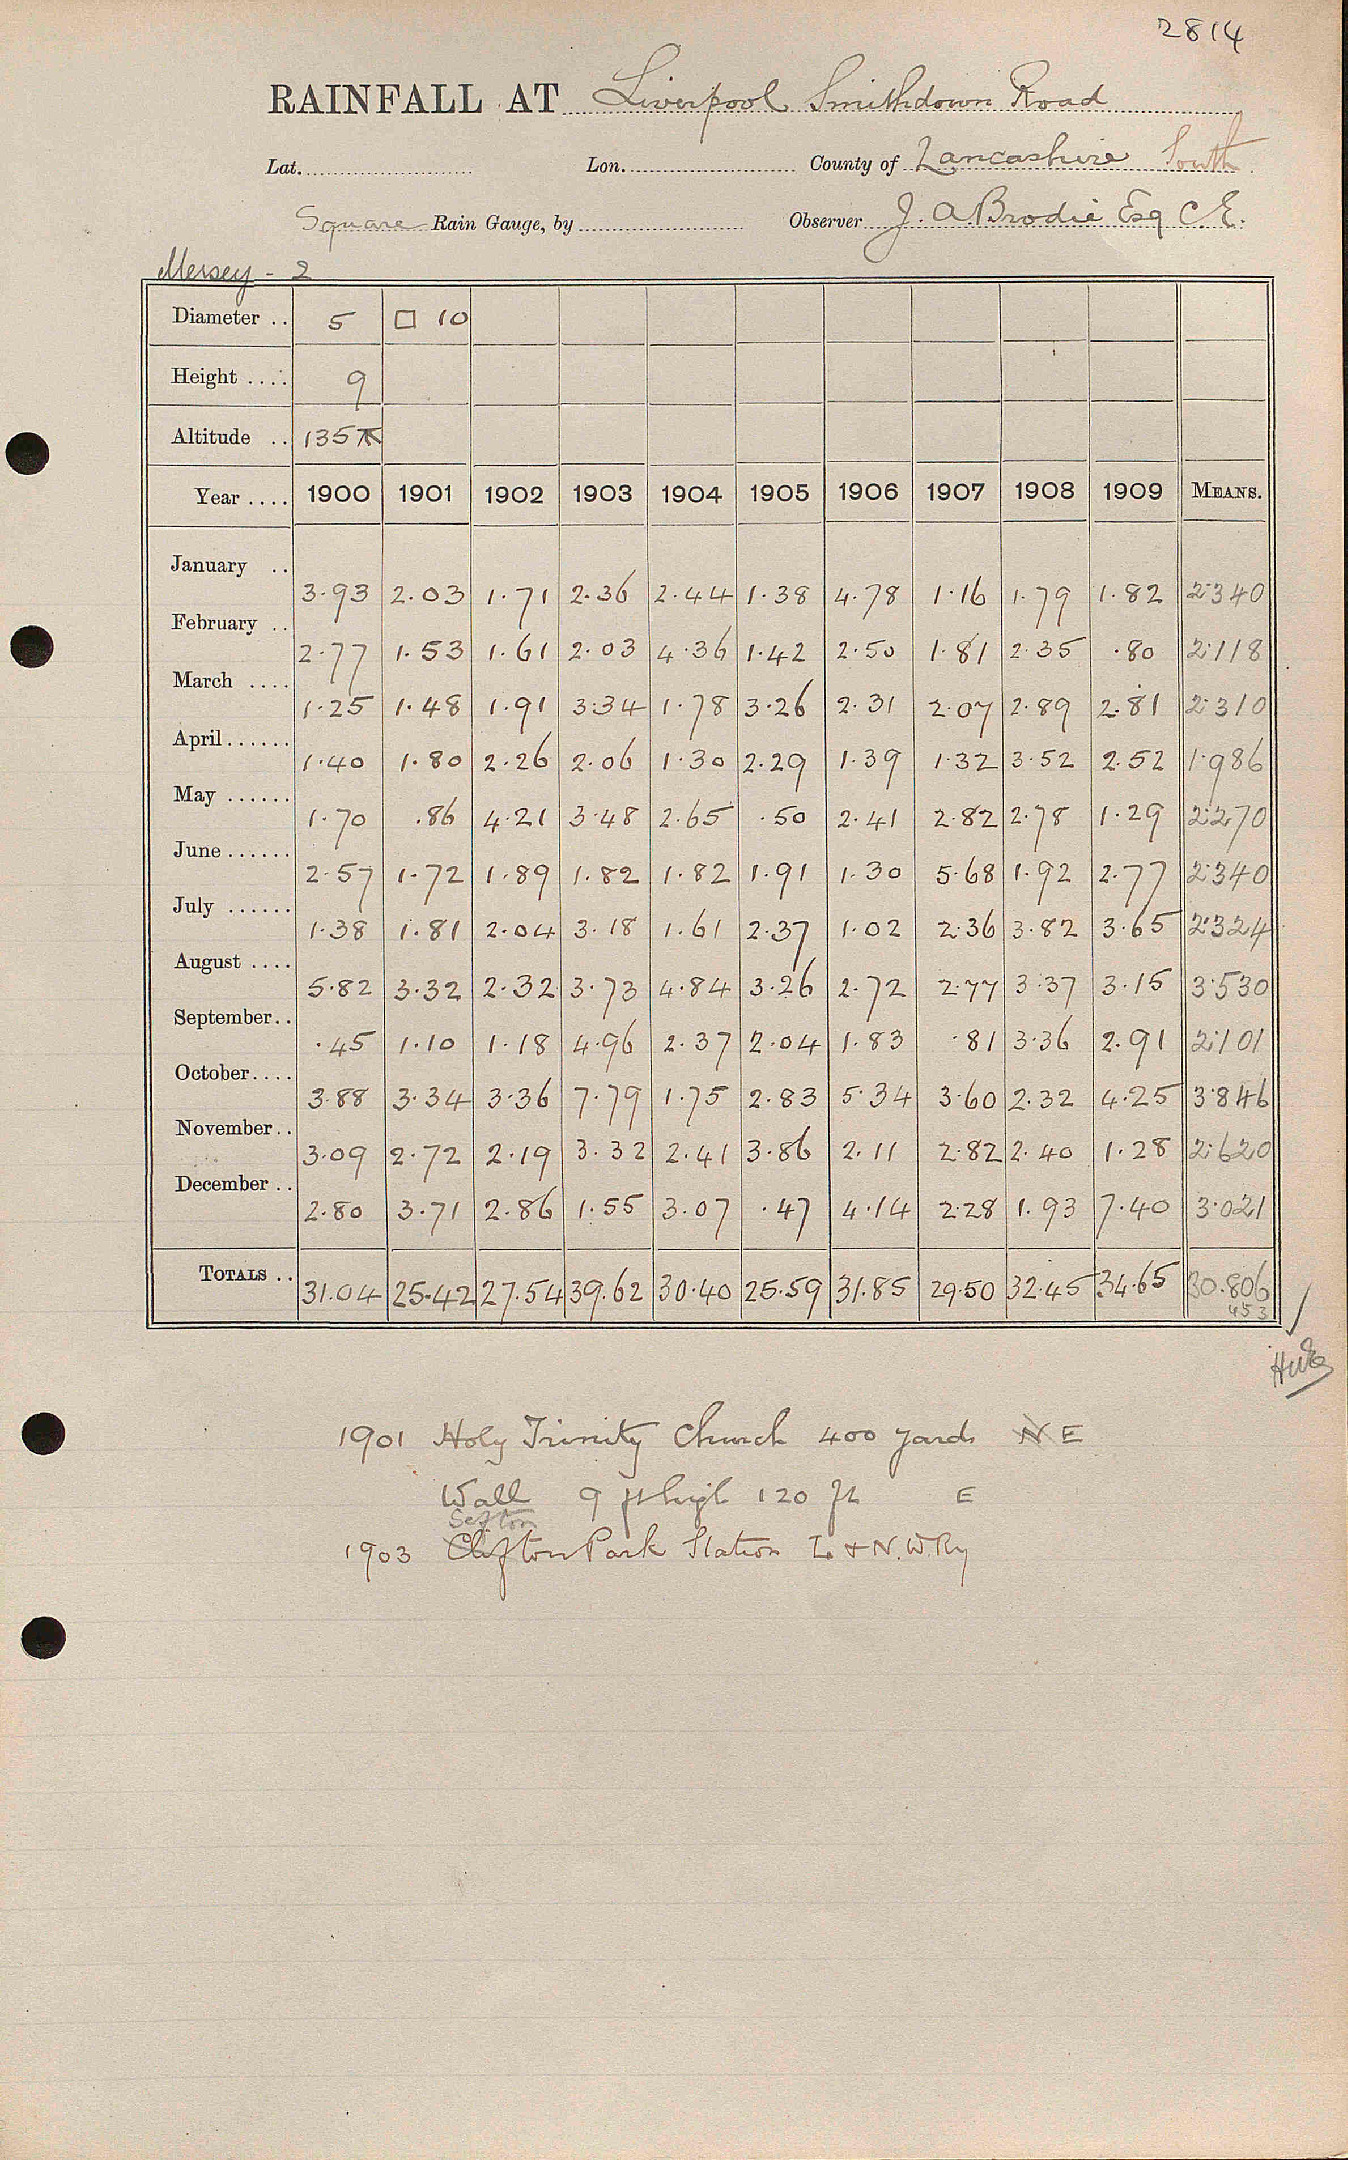 2814
RAINFALL AT Liverpool Smithdown Road
Lat. Lon. County of Lancashire South
Square Rain Gauge, by Observer J. A. Brodie Esq C.E.
Mersey - 2
Diameter .. 5 □ 10
Height .... 9
Altitude .. 135
Year .... 1900 1901 1902 1903 1904 1905 1906 1907 1908 1909 MEANS.
January .. 3.93 2.03 1.71 2.36 2.44 1.38 4.78 1.16 1.79 1.82 2.340
February .. 2.77 1.53 1.61 2.03 4.36 1.42 2.50 1.81 2.35 .80 2.118
March .... 1.25 1.48 1.91 3.34 1.78 3.26 2.31 2.07 2.89 2.81 2.310
April...... 1.40 1.80 2.26 2.06 1.30 2.29 1.39 1.32 3.52 2.52 1.986
May ...... 1.70 .86 4.21 3.48 2.65 .50 2.41 2.82 2.78 1.29 2.270
June ...... 2.57 1.72 1.89 1.82 1.82 1.91 1.30 5.68 1.92 2.77 2.340
July ...... 1.38 1.81 2.04 3.18 1.61 2.37 1.02 2.36 3.82 3.65 2.324
August .... 5.82 3.32 2.32 3.73 4.84 3.26 2.72 2.77 3.37 3.15 3.530
September.. .45 1.10 1.18 4.96 2.37 2.04 1.83 .81 3.36 2.91 2.101
October.... 3.88 3.34 3.36 7.79 1.75 2.83 5.34 3.60 2.32 4.25 3.846
November.. 3.09 2.72 2.19 3.32 2.41 3.86 2.11 2.82 2.40 1.28 2.620
December .. 2.80 3.71 2.86 1.55 3.07 .47 4.14 2.28 1.93 7.40 3.021
TOTALS .. 31.04 25.42 27.54 39.62 30.40 25.59 31.85 29.50 32.45 34.65 30.806
453
1901 Holy Trinity Church 400 yards N E
Wall 9 ft high 120 ft E
Sefton
1903 Clifton Park Station L & N.W.Ry